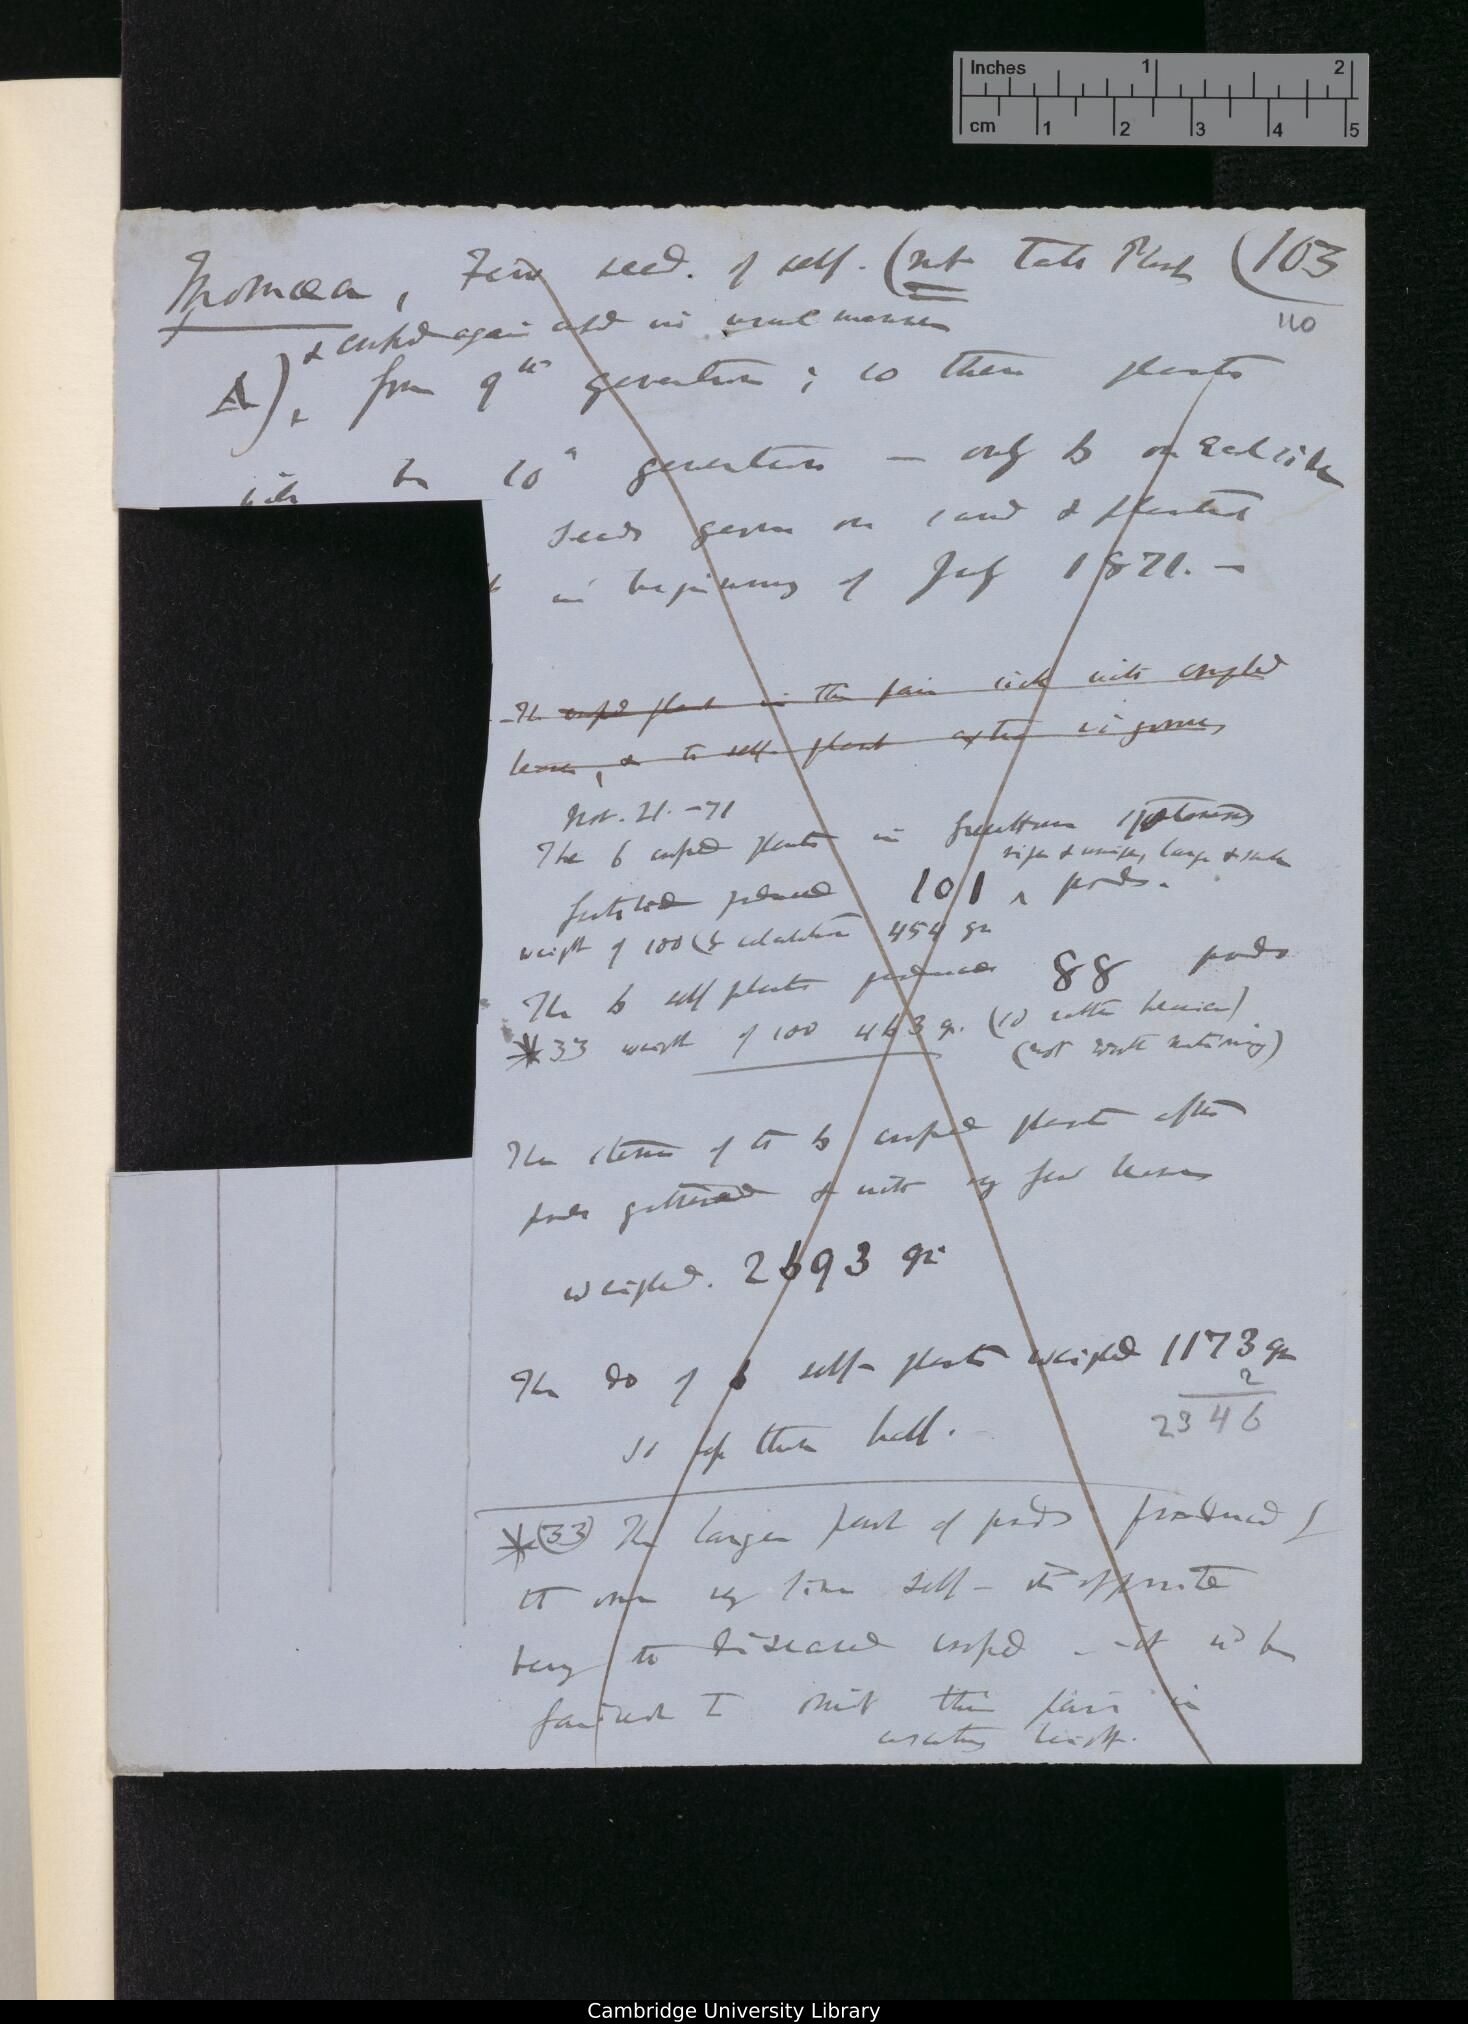 Inches 1 2
cm 1 2 3 4 5
Ipomœa, Few seed. of self. (not Tall Plants (103
110
& crossed again and in usual manner
A), & from 9th generation; so these plants
will be 10th generation — only 6 on each side
seeds germ on sand & planted
in beginning of July 1871. —
The crossed plant in this pair sick with crumpled
leaves, & the self-plant extra vigorous
Nov. 21. –71
The 6 crossed plants in Greenhouse spontaneously
ripe & unripe, large & small
fertilised produced 101 ^ pods.
weight of 100 (by calculation 454 gr
The 6 self plants produced 88 pods
*33 weight of 100 463 gr. (so rather heavier)
(not worth noticing)
The stems of the 6 crossed plants after
pods gathered & with very few leaves
weighed. 2693 gr
The do of 6 self-plants weighed 1173 gr
2
2346
so less than half.
*(33) The larger part of pods produced by
the one very fine self- its opposite
being the diseased crossed – it wd be
fairest to omit this pair in
height.
Cambridge University Library